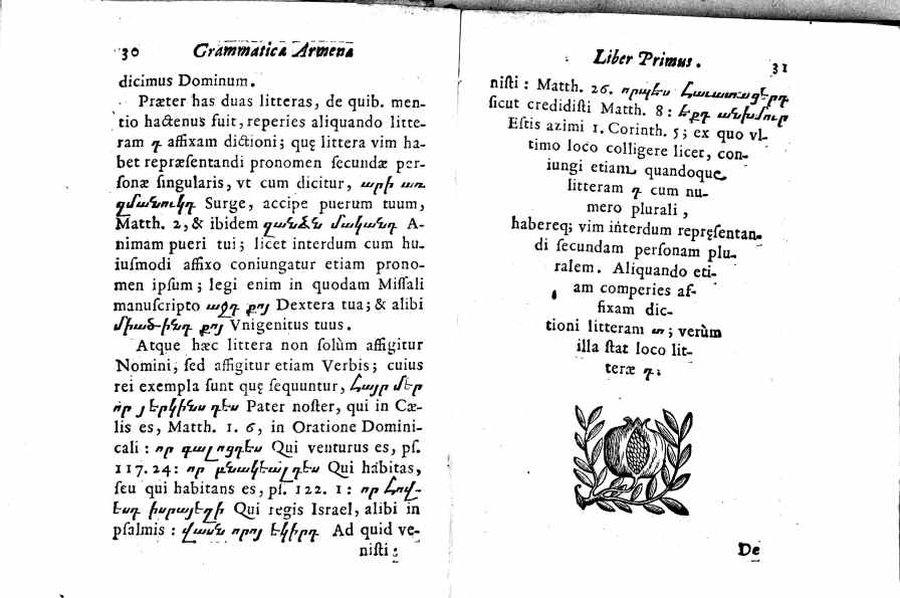 30 Grammatica Armena
dicimus Dominum.
Præter has duas litteras, de quib. men-
tio hactenus fuit, reperies aliquando litte-
ram դ affixam dictioni; quę littera vim ha-
bet repræsentandi pronomen secundæ per-
sonæ singularis, vt cum dicitur, արի առ
զմանուկդ Surge, accipe puerum tuum,
Matth. 2, & ibidem զանձն մականդ A-
nimam pueri tui; licet interdum cum hu-
iusmodi affixo coniungatur etiam prono-
men ipsum; legi enim in quodam Missali
manuscripto աջդ քոյ Dextera tua; & alibi
միածինդ քոյ Vnigenitus tuus.
Atque hæc littera non solùm affigitur
Nomini, sed affigitur etiam Verbis; cuius
rei exempla sunt quę sequuntur, Հայր մեր
որ յերկինս դես Pater noster, qui in Cæ-
lis es, Matth. 1. 6, in Oratione Domini-
cali: որ գալոցդես Qui venturus es, ps.
117. 24: որ բնակեալդես Qui habitas,
seu qui habitans es, ps. 122. 1: որ Հով-
Qui regis Israel, alibi in
psalmis: վասն որոյ եկիրդ Ad quid ve-
nisti:
Liber Primus. 31
nisti: Matth. 26. որպես Հաւատացերդ
sicut credidisti Matth. 8: եքդ անխմուր
Estis azimi 1. Corinth. 5; ex quo vl-
timo loco colligere licet, con-
iungi etiam quandoque
litteram դ cum nu-
mero plurali,
habereq; vim interdum repręsentan-
di secundam personam plu-
ralem. Aliquando eti-
am comperies af-
fixam dic-
tioni litteram տ; verùm
illa stat loco lit-
teræ դ;
De